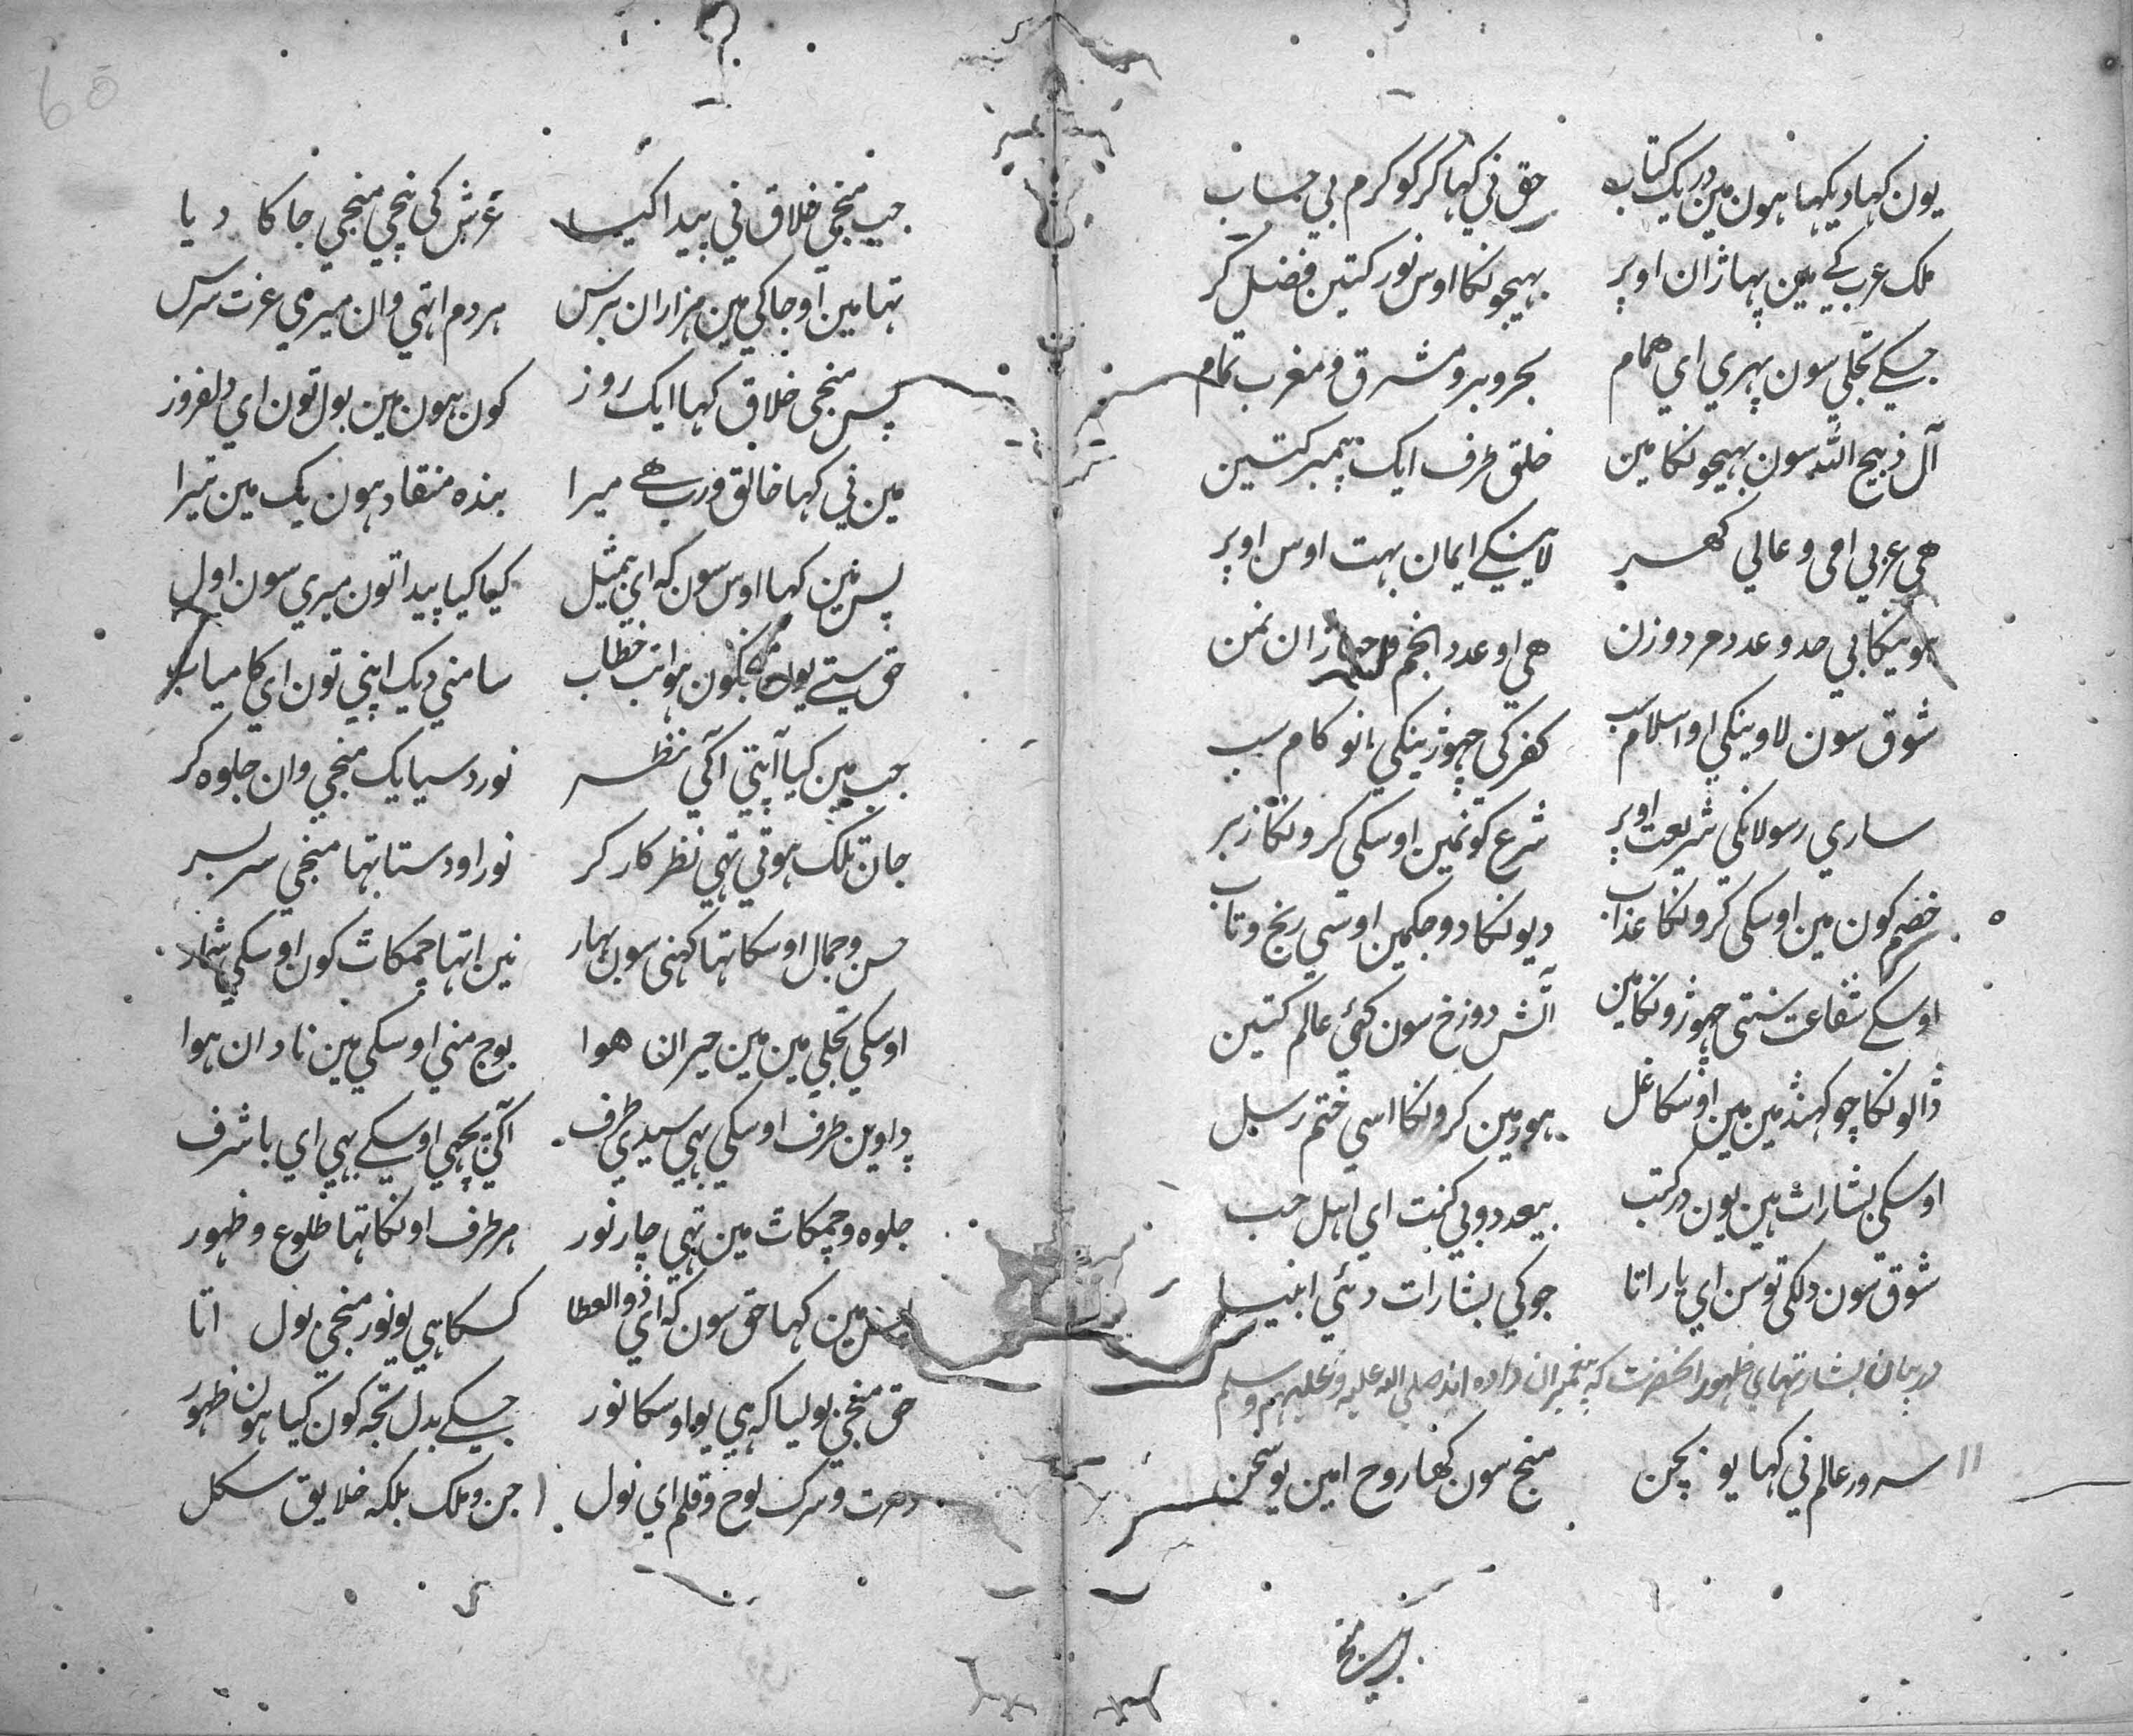 یون کہا دیکھا ہون مین در یک کتاب حق نی کہا کر کو کرم بی حساب
ملک عرب کے مین پہاڑان اوپر بہیجونکا اوس نور کتین فضل کر
جسکے تجلی سون پہری ای ھمام بحر و بر و مشرق و مغرب تمام
آل ذبیح اللہ سون بہیجونکا مین خلق طرف ایک پیمبر کتین
ھی عربی امی و عالی کھر لاینکے ایمان بہت اوس اوپر
ہوینکا بی حد و عدد مرد و زن ھی او عدد انجم نمن
شوق سون لاوینکی او اسلام سب کفر کی چہوڑینکی انو کام سب
ساری رسولانکی شریعت اوپر شرع کو نمین اوسکی کرونکا زبر
خصم کون مین اوسکی کرونکا عذاب دیونکا دو جکمین اوسی رنج و تاب
اوسکے شفاعت ستی چہوڑونکا مین آتش دوزخ سون کھی عالم کتین
ڈالونکا چو کہنڈ مین مین اوسکا غل ہور مین کرونکا اسی ختم رسل
اوسکی بشارات ہین یون در کتب بیعدد و بی کنت ای اہل حب
شوق سون دلکی تو سن ای یار اتا جو کی بشارات دئی انبیا
در بیان بشارتہای ظہور آنحضرت کہ پیغمبران دادہ اند صلی اللہ علیہ و علیہم وسلم
سرور عالم نی کہا یو بچن منج سون کھا روح امین یو سخن
جب منجی خلاق نی پیدا کیا عرش کی نیچی منجی جاکا دیا
تہا مین او جاکی مین ہزاران برس ہر دم اتہی وان میری عزت سرس
پس منجی خلاق کہا ایک روز کون ہون مین بول تون ای دلفروز
مین نی کہا خالق و رب ھے میرا بندہ منقاد ہون یک مین تیرا
پس مین کہا اوس سون کہ ای بیمثیل کیا کیا پیدا تون میری سون اول
حق ستے یون مجکون ہوا تب خطاب سامنی دیک اپنی تون ای کامیاب
جب مین کیا آپتی آکی نظر نور دسیا یک منجی وان جلوہ کر
جان تلک ہوتی تہی نظر کار کر نور او دستا تہا منجی سر بسر
حسن و جمال اوسکا تہا کہنی سون بہار نین اتہا چمکاٹ کون اوسکی شمار
اوسکی تجلی مین مین حیران ھوا بوج منی اوسکی مین نادان ہوا
داوین طرف اوسکی بہی سیدی طرف آکی پیچہی اوسکے بہی ای با شرف
جلوہ و چمکاٹ مین تہی چار نور ہر طرف اونکا تہا طلوع و ظہور
پس مین کہا حق سون کہ ای ذوالعطا کسکا ہی یو نور منجی بول اتا
حق منجی بولیا کہ ہی یو اوسکا نور جسکے بدل تجہ کون کیا ہون ظہور
دھرت و سرک لوح و قلم ای نول جن و ملک بلکہ خلایق سکل